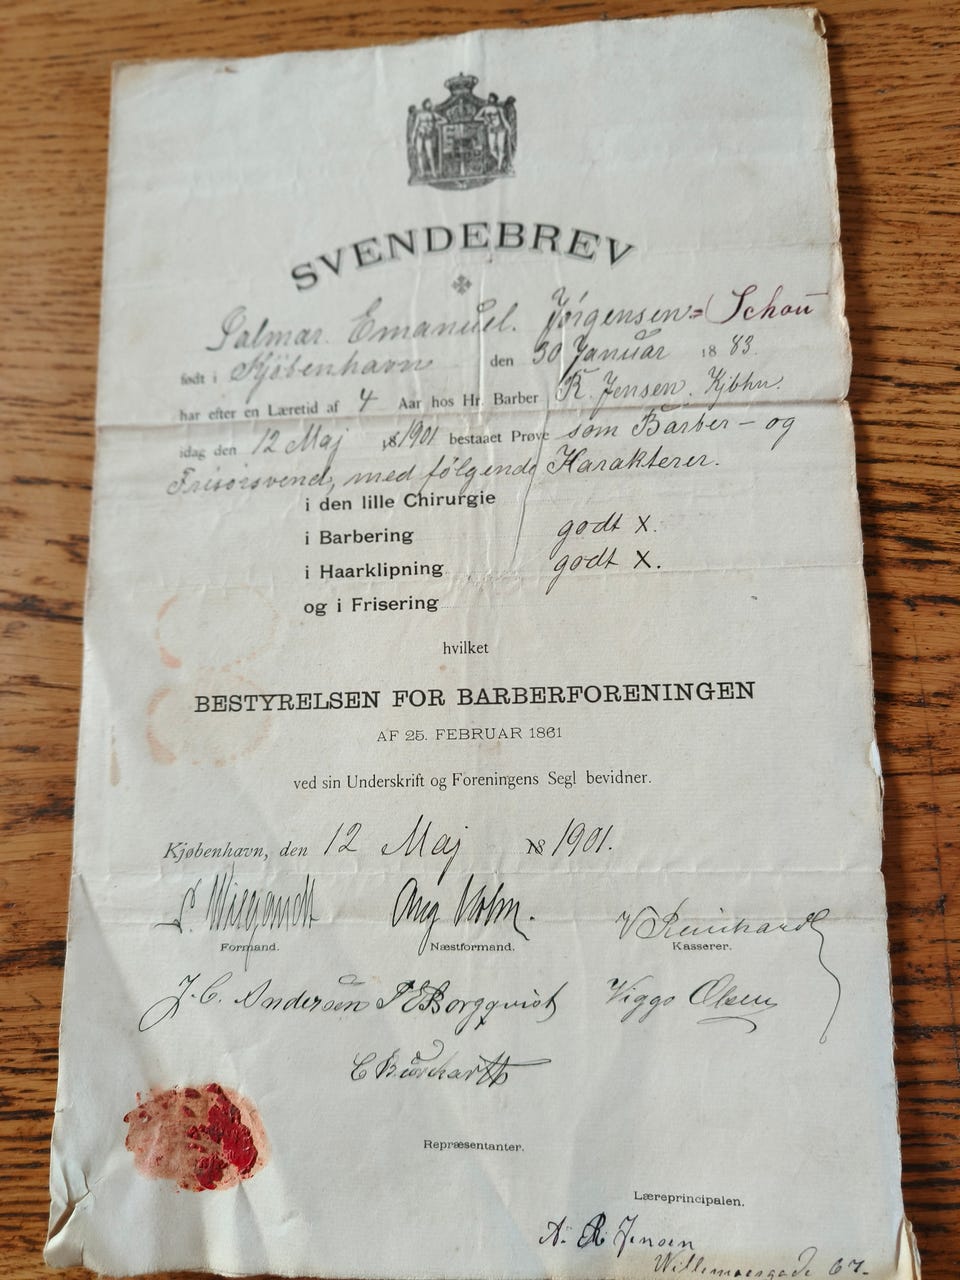 SVENDEBREV
Salmar Emanuel. Jørgensen = (Schou
født i Kjøbenhavn den 30 Januar 1883.
har efter en Læretid af 4 Aar hos Hr. Barber R. Jensen. Kjbhn.
idag den 12 Maj 1901 bestaaet Prøve som Barber- og
Frisørsvend, med følgende Karakterer.
i den lille Chirurgie
i Barbering godt X.
i Haarklipning godt X.
og i Frisering
hvilket
BESTYRELSEN FOR BARBERFORENINGEN
AF 25. FEBRUAR 1861
ved sin Underskrift og Foreningens Segl bevidner.
Kjøbenhavn, den 12 Maj 18 1901.
Wiegandt Aug Holm. V Reinhardt
Formand. Næstformand. Kasserer.
J. C. Andersen Borgqvist Viggo Olsen
C Burchardt
Repræsentanter.
Læreprincipalen.
A. R. Jensen
Willemoesgade 67.